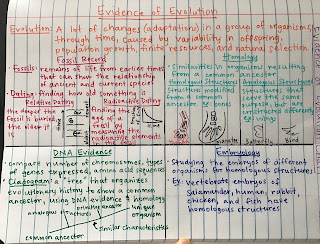 Evidence of Evolution
Evolution: A lot of changes (adaptation) in a group of organisms
through time, caused by variability in offspring,
population growth, finite resources, and natural selection
Fossil Record
• Fossils: remains of life from earlier times
that can show the relationship
of ancient and current species
• Dating: finding how old something is
Relative Dating
the deeper the
fossil is buried
the older it
is
Radioactive Dating
age of a
fossil by
measuring the
radioactive elements
Homology
• Similarities in organisms resulting
from a common ancestor
Homologous Structures
structure modified
from a common
ancestor
ex: bones
Analogous Structures
structures that
serve the same
function, but are
constructed differently
ex: wings
Butterfly
Bird
DNA Evidence
• compare number of chromosomes, types
of genes expressed, amino acid sequences
• Cladogram: a "tree" that organizes
evolutionary history to show a common
ancestor, using DNA evidence + homology
analogous structures
unique
organism
similar characteristics
common ancestor
Embryology
• Studying the embryos of different
organisms for homologous structures
• Ex: Vertebrate embryos of
salamander, human, rabbit,
chicken, and fish have
homologous structures